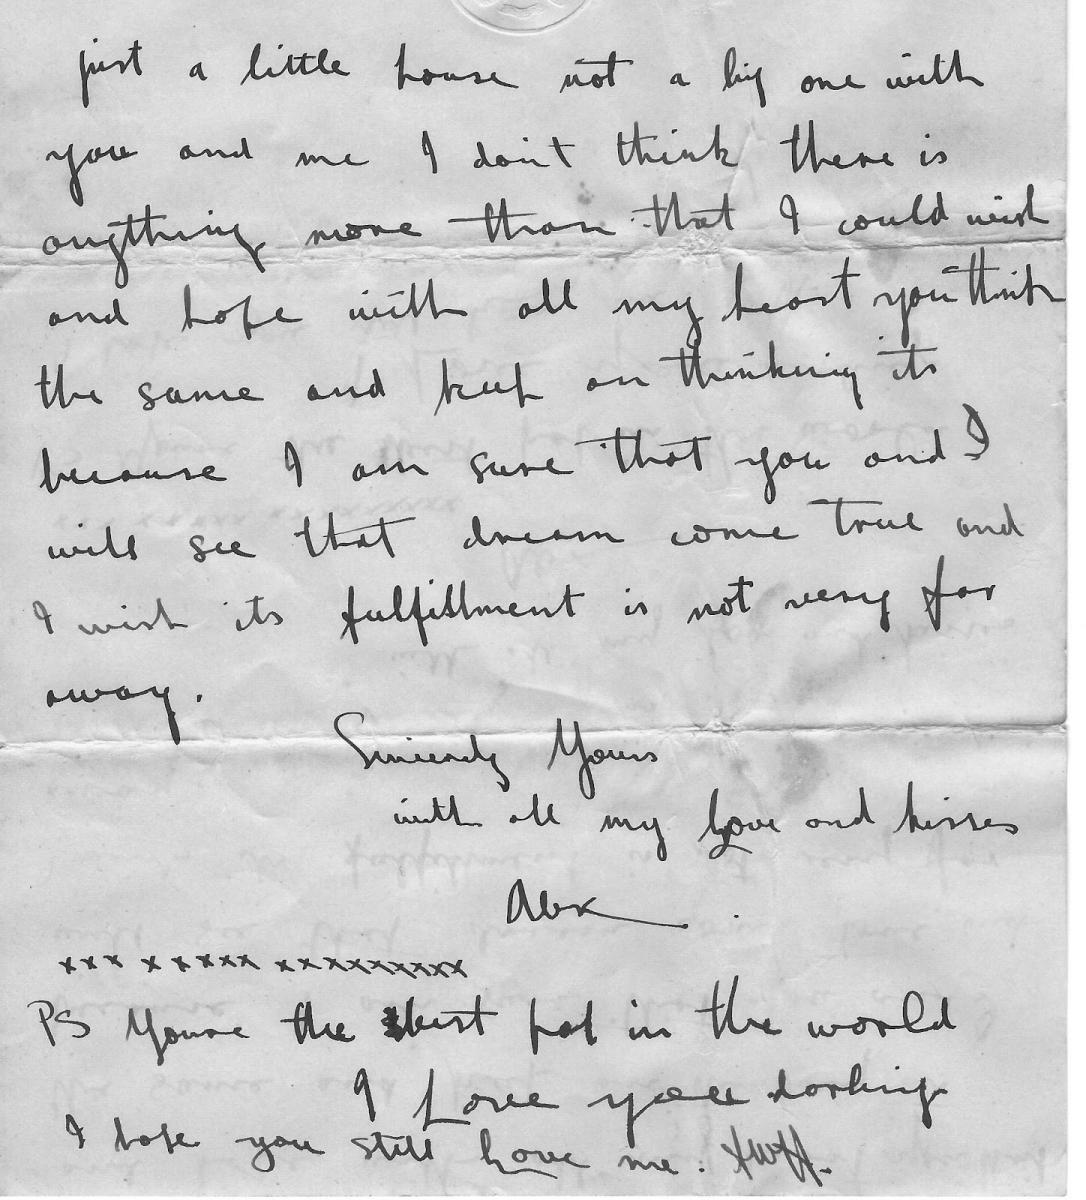 just a little house not a big one with
you and me I don't think there is
anything more than that I could wish
and hope with all my heart you think
the same and keep on thinking its
because I am sure that you and I
will see that dream come true and
I wish its fulfillment is not very far
away.
Sincerely Yours
with all my love and kisses
Alex
xxx xxxxxx xxxxxxxxxx
PS Youre the best pal in the world
I Love you darling
I hope you still love me: